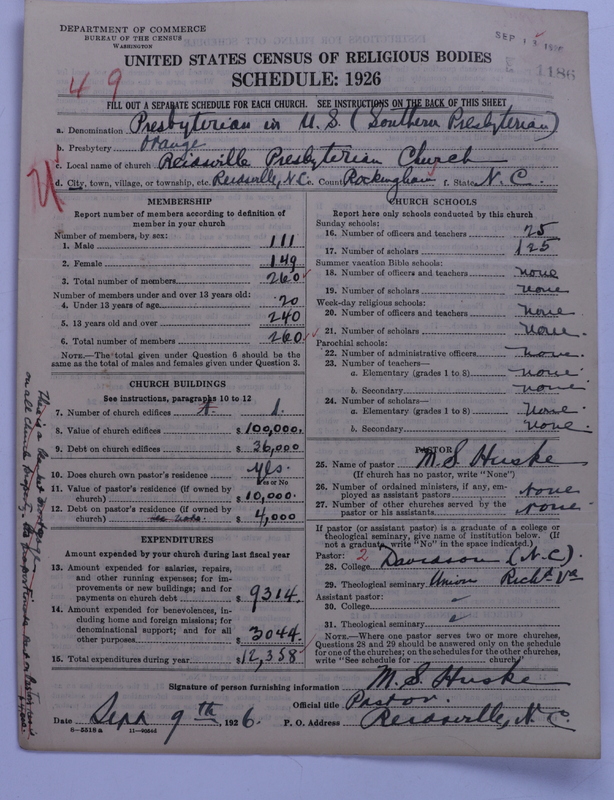 DEPARTMENT OF COMMERCE
BUREAU OF THE CENSUS
WASHINGTON
SEP 13 1926
1186
UNITED STATES CENSUS OF RELIGIOUS BODIES
SCHEDULE: 1926
4 9
FILL OUT A SEPARATE SCHEDULE FOR EACH CHURCH. SEE INSTRUCTIONS ON THE BACK OF THIS SHEET
a. Denomination Presbyterian in U.S. (Southern Presbyterian)
b. Presbytery Orange
c. Local name of church Reidsville Presbyterian Church
d. City, town, village, or township, etc. Reidsville, N.C. e. County Rockingham f. State N.C.
MEMBERSHIP
Report number of members according to definition of
member in your church
Number of members, by sex:
1. Male 111
2. Female 149
3. Total number of members 260
Number of members under and over 13 years old:
4. Under 13 years of age 20
5. 13 years old and over 240
6. Total number of members 260
NOTE.—The total given under Question 6 should be the
same as the total of males and females given under Question 3.
CHURCH BUILDINGS
See instructions, paragraphs 10 to 12
7. Number of church edifices 1.
8. Value of church edifices $ 100,000.
9. Debt on church edifices $ 36,000
10. Does church own pastor's residence yes.
Yes or No
11. Value of pastor's residence (if owned by
church) $ 10,000.
12. Debt on pastor's residence (if owned by
church) $ 4,000
EXPENDITURES
Amount expended by your church during last fiscal year
13. Amount expended for salaries, repairs,
and other running expenses; for im-
provements or new buildings; and for
payments on church debt $ 9314.
14. Amount expended for benevolences, in-
cluding home and foreign missions; for
denominational support; and for all
other purposes $ 3044.
15. Total expenditures during year $ 12,358
CHURCH SCHOOLS
Report here only schools conducted by this church
Sunday schools:
16. Number of officers and teachers 25
17. Number of scholars 125
Summer vacation Bible schools:
18. Number of officers and teachers none
19. Number of scholars none
Week-day religious schools:
20. Number of officers and teachers none
21. Number of scholars none.
Parochial schools:
22. Number of administrative officers none.
23. Number of teachers—
a. Elementary (grades 1 to 8) none
b. Secondary none
24. Number of scholars—
a. Elementary (grades 1 to 8) none
b. Secondary none.
PASTOR
25. Name of pastor M.S. Huske
(If church has no pastor, write "None")
26. Number of ordained ministers, if any, em-
ployed as assistant pastors none
27. Number of other churches served by the
pastor or his assistants none.
If pastor (or assistant pastor) is a graduate of a college or
theological seminary, give name of institution below. (If
not a graduate, write "No" in the space indicated.)
Pastor: 2
28. College Davidson (N.C.)
29. Theological seminary Union Rich'd Va
Assistant pastor:
30. College
31. Theological seminary
NOTE.—Where one pastor serves two or more churches,
Questions 28 and 29 should be answered only on the schedule
for one of the churches; on the schedules for the other churches,
write "See schedule for church"
Signature of person furnishing information M.S. Huske
Official title Pastor.
Date Sept 9th, 1926. P. O. Address Reidsville, N.C.
8—5518a 11—90546